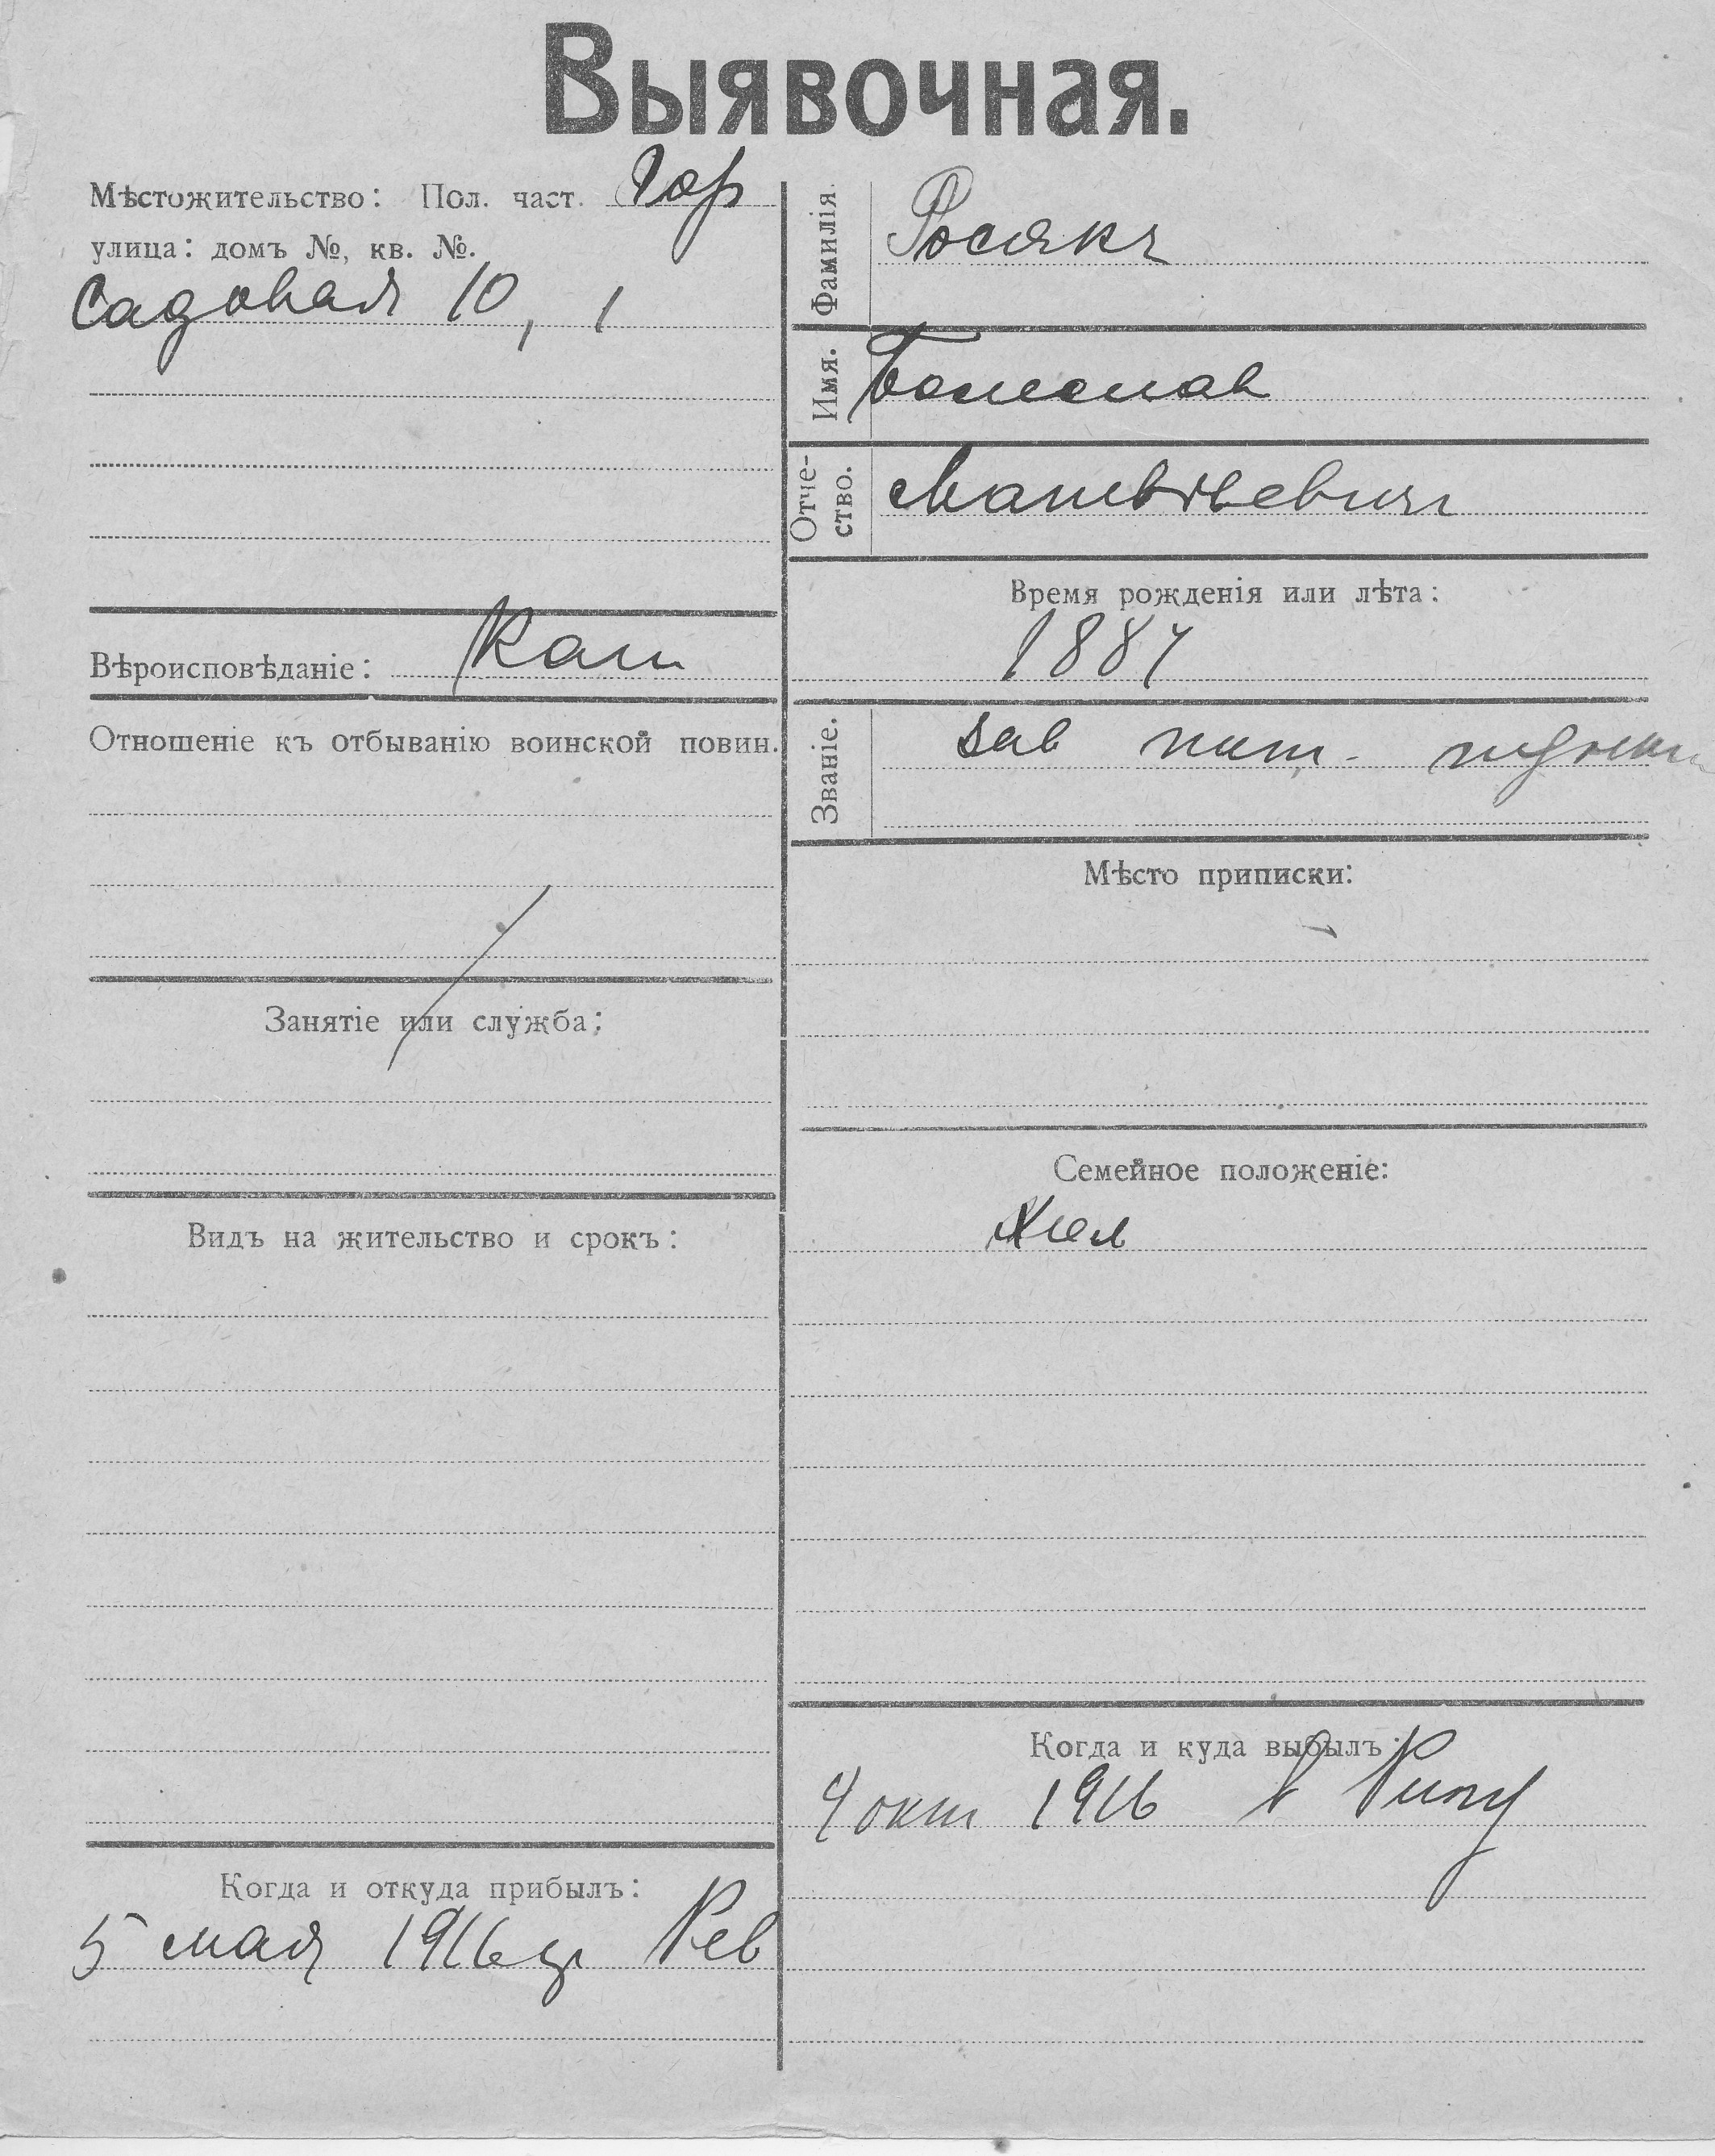 Выявочная.
Мѣстожительство: Пол. част. Гор
улица: домъ №, кв. №.
Садовая 10, 1
Вѣроисповѣданіе: Кат
Отношеніе къ отбыванію воинской повин.
Занятіе или служба:
Видъ на жительство и срокъ:
Когда и откуда прибылъ:
5 мая 1916 из Рев
Фамилія
Росякъ
Имя.
Болеслав
Отче-
ство.
Матвѣевичъ
Время рожденія или лѣта:
1887
Званіе.
Зав пит. пункт
Мѣсто приписки:
Семейное положеніе:
Когда и куда выбылъ:
4 окт 1916 в Ригу